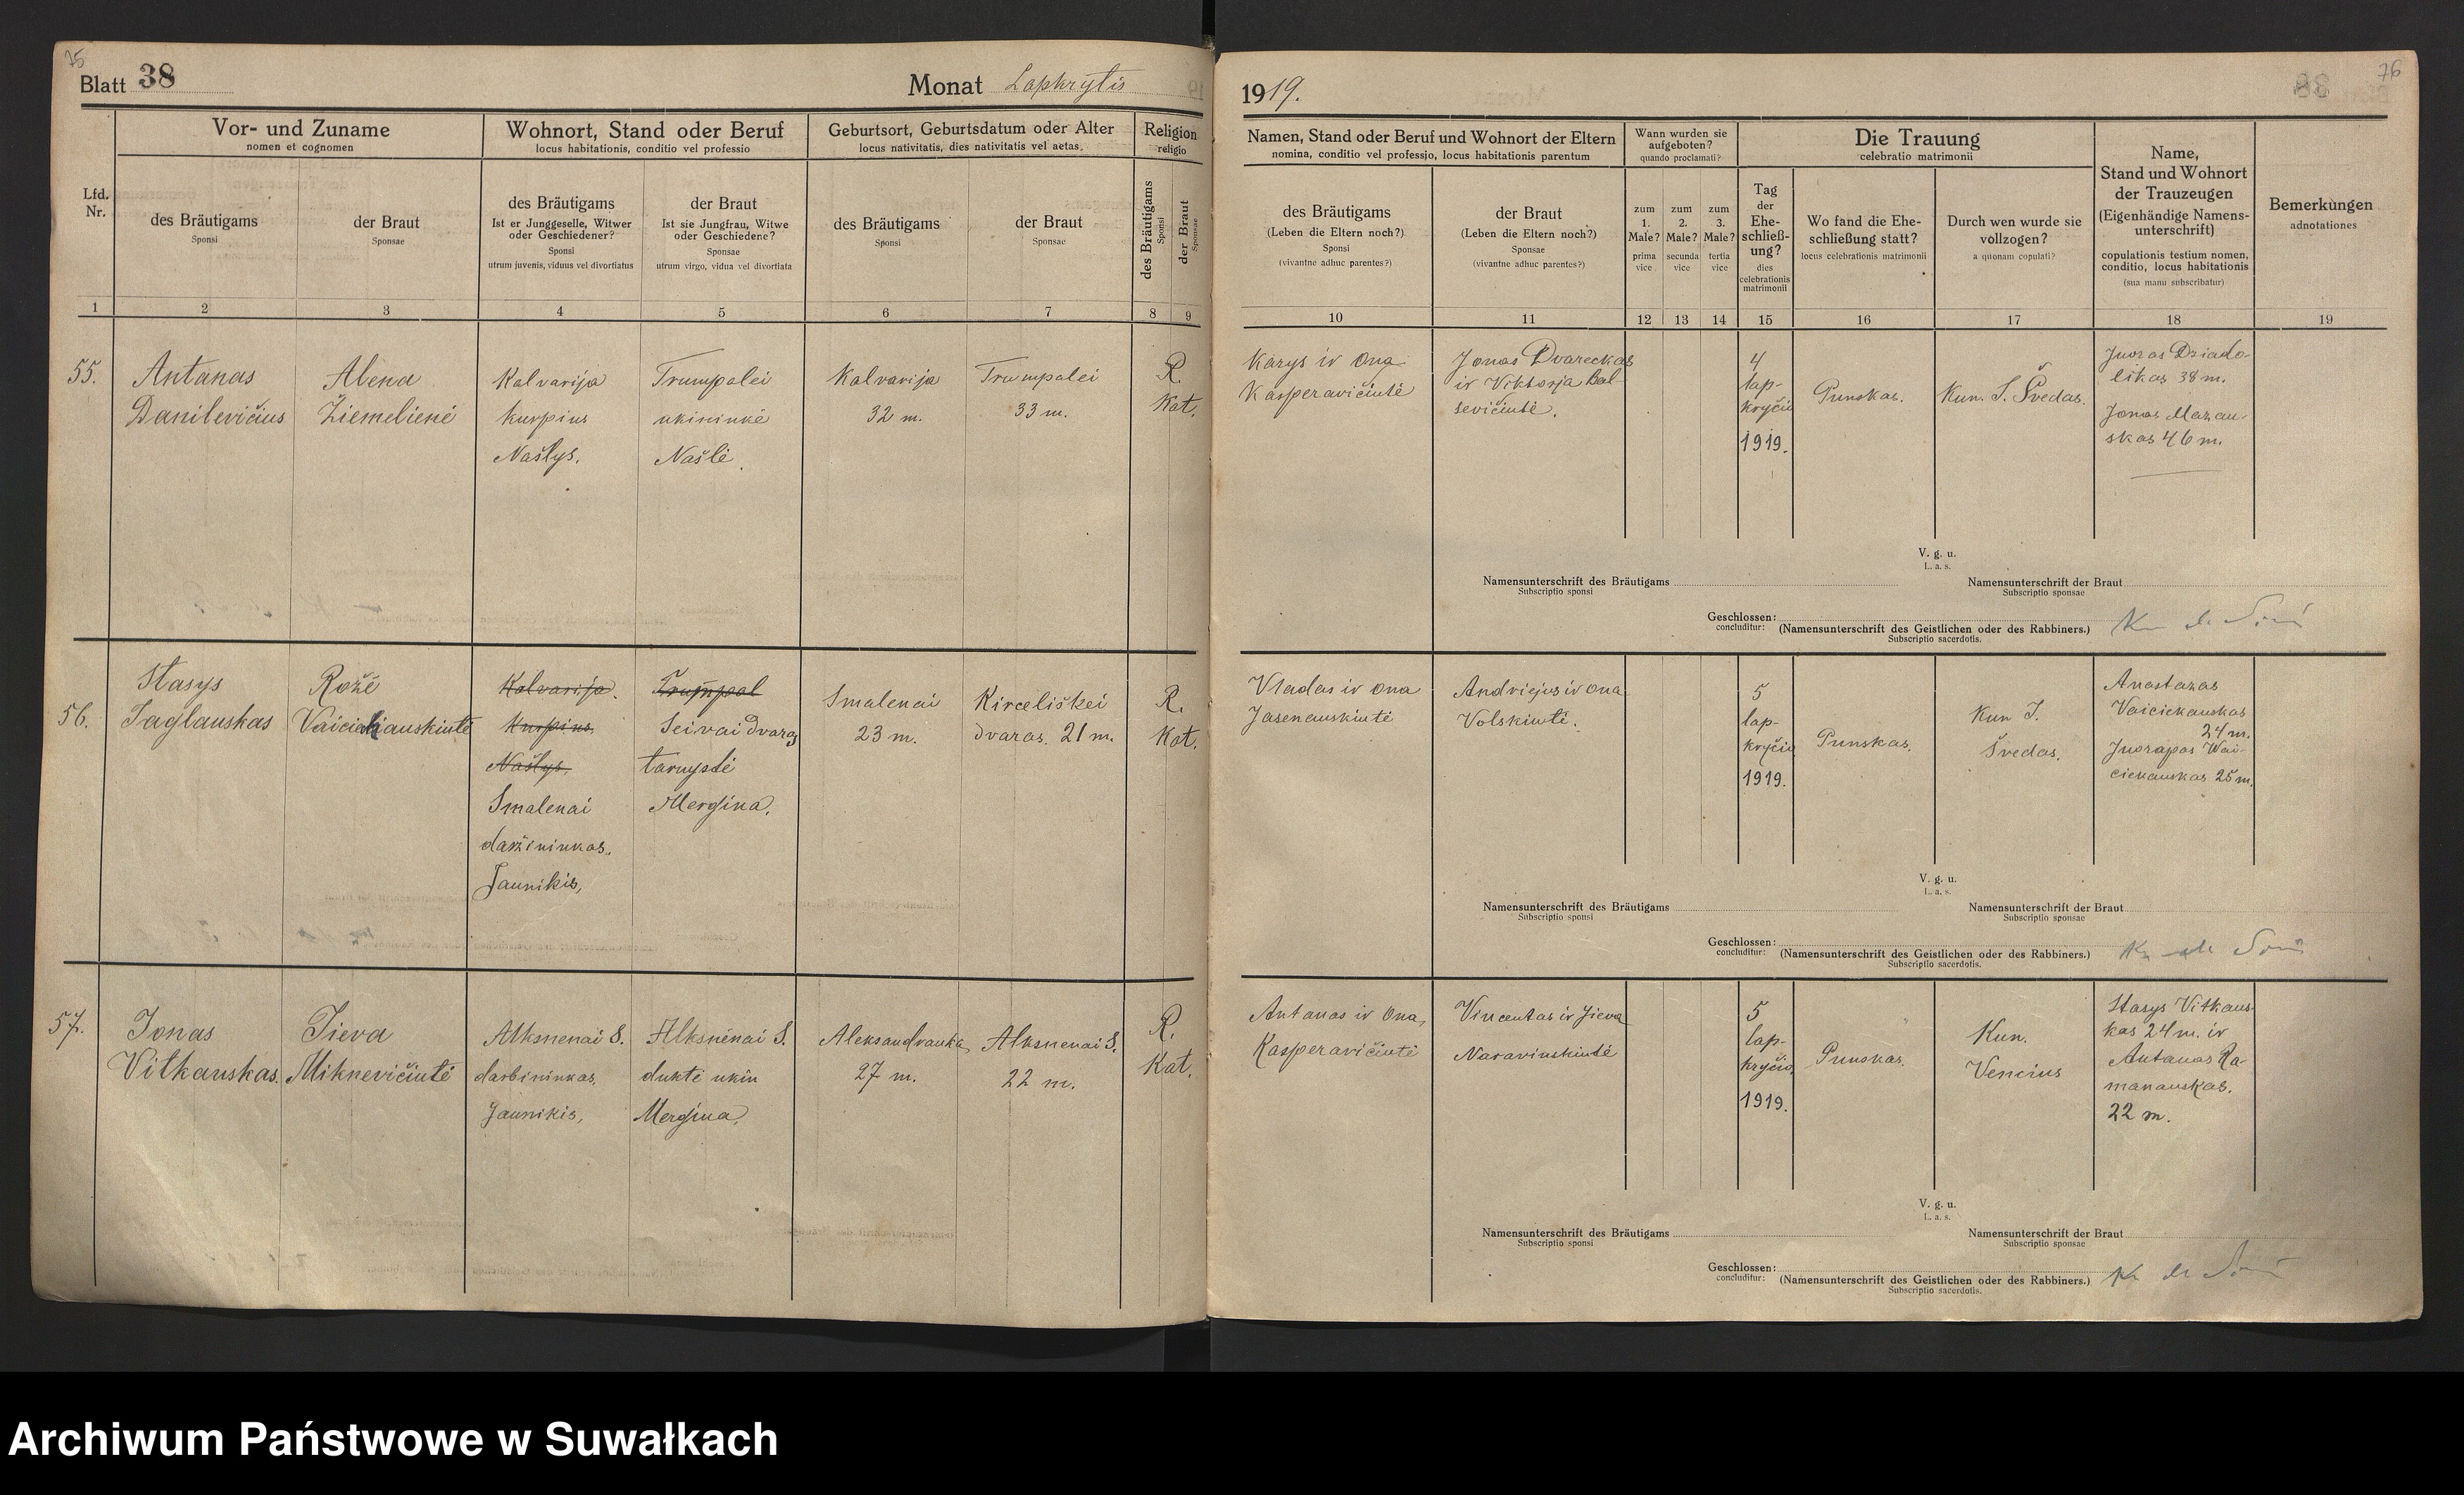 75
Blatt 38
Monat Lapkrytis
Vor- und Zuname
nomen et cognomen
Wohnort, Stand oder Beruf
locus habitationis, conditio vel professio
Geburtsort, Geburtsdatum oder Alter
locus nativitatis, dies nativitatis vel aetas.
Religion
religio
Lfd.
Nr.
des Bräutigams
Sponsi
der Braut
Sponsae
des Bräutigams
Ist er Junggeselle, Witwer
oder Geschiedener?
Sponsi
utrum juvenis, viduus vel divortiatus
der Braut
Ist sie Jungfrau, Witwe
oder Geschiedene?
Sponsae
utrum virgo, vidua vel divortiata
des Bräutigams
Sponsi
der Braut
Sponsae
des Bräutigams
Sponsi
der Braut
Sponsae
1 2 3 4 5 6 7 8 9
55.
Antanas
Danilevičius
Alena
Žiemelienė
Kalvarija
kurpius
Našlys.
Trumpalei
ukininkė
Našlė
Kalvarija
32 m.
Trumpalei
33 m.
R.
Kat.
56.
Stasys
Jaglauskas
Rožė
Kalvarija.
Kurpius,
Našlys,
Smalenai
daržininkas.
Jaunikis,
Trumpal
Seivai dvaras
tarnystė
Mergina.
Smalenai
23 m.
Kirceliškei
dvaras. 21 m.
R.
Kat.
57.
Jonas
Vitkauskas.
Jieva
Miknevičiutė
Alksnenai S.
darbininkas.
Jaunikis,
Alksnėnai S.
duktė ukin
Mergina.
Aleksandrauka
27 m.
Alksnenai S.
22 m.
R.
Kat.
76
1919.
Namen, Stand oder Beruf und Wohnort der Eltern
nomina, conditio vel professjo, locus habitationis parentum
Wann wurden sie
aufgeboten?
quando proclamati?
Die Trauung
celebratio matrimonii
Name,
Stand und Wohnort
der Trauzeugen
(Eigenhändige Namens-
unterschrift)
copulationis testium nomen,
conditio, locus habitationis
(sua manu subscribatur)
Bemerkungen
adnotationes
des Bräutigams
(Leben die Eltern noch?)
Sponsi
(vivantne adhuc parentes?)
der Braut
(Leben die Eltern noch?)
Sponsae
(vivantne adhuc parentes?)
zum
1.
Male?
prima
vice
zum
2.
Male?
secunda
vice
zum
3.
Male?
tertia
vice
Tag
der
Ehe-
schließ-
ung?
dies
celebrationis
matrimonii
Wo fand die Ehe-
schließung statt?
locus celebrationis matrimonii
Durch wen wurde sie
vollzogen?
a quonam copulati?
10 11 12 13 14 15 16 17 18 19
Karys ir Ona
Kasperavičiutė
Jonas Dvareckas
ir Viktorja Bal-
sevičiutė.
4
lap-
kryčio
1919.
Punskas.
Kun. S. Švedas.
Juozas Dziado-
likas 38 m.
Jonas Mazau-
skas 46 m.
V. g. u.
L. a. s.
Namensunterschrift des Bräutigams
Subscriptio sponsi
Namensunterschrift der Braut
Subscriptio sponsae
Geschlossen:
concluditur:
(Namensunterschrift des Geistlichen oder des Rabbiners.)
Subscriptio sacerdotis.
Vladas ir Ona
Jasenauskiutė
Andriejus ir Ona
Volskiutė.
5
lap-
kryčio
1919.
Punskas.
Kun S.
Švedas.
Anastazas
Vaiciekauskas
24 m.
Juozapas Wai-
ciekauskas 25 m.
V. g. u.
L. a. s.
Namensunterschrift des Bräutigams
Subscriptio sponsi
Namensunterschrift der Braut
Subscriptio sponsae
Geschlossen:
concluditur:
(Namensunterschrift des Geistlichen oder des Rabbiners.)
Subscriptio sacerdotis.
Antanas ir Ona,
Kasperavičiutė
Vincentas ir Jieva
Naravinskiutė
5
lap-
kryčio
1919.
Punskas.
Kun.
Vencius
Stasys Vitkaus-
kas 24 m. ir
Antanas Ra-
manauskas.
22 m.
V. g. u.
L. a. s.
Namensunterschrift des Bräutigams
Subscriptio sponsi
Namensunterschrift der Braut
Subscriptio sponsae
Geschlossen:
concluditur:
(Namensunterschrift des Geistlichen oder des Rabbiners.)
Subscriptio sacerdotis.
Archiwum Państwowe w Suwałkach